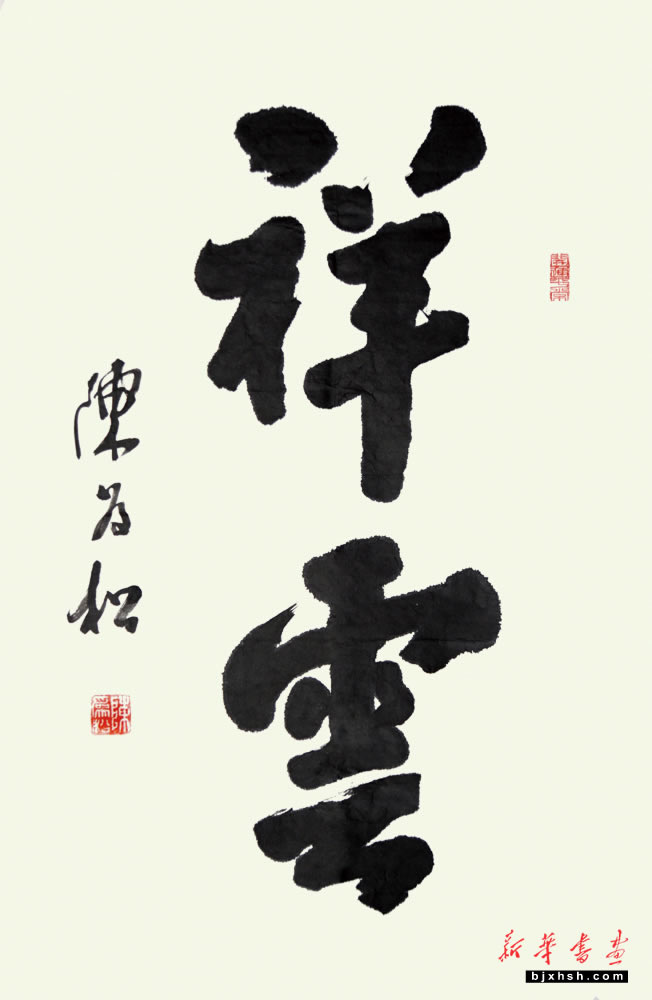 祥雲
陳为松
陳為松
新华书画
bjxhsh.com